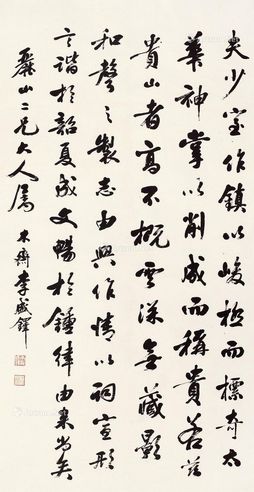 夫少室作鎮以峻極而標奇太
華神掌以削成而稱貴若茲
貴山者高不概雲深無藏影
和聲之製志由興作情以詞宣形
言諧於韶夏成文暢於鍾律由來尚矣
麗山二兄大人屬
木齋李盛鐸